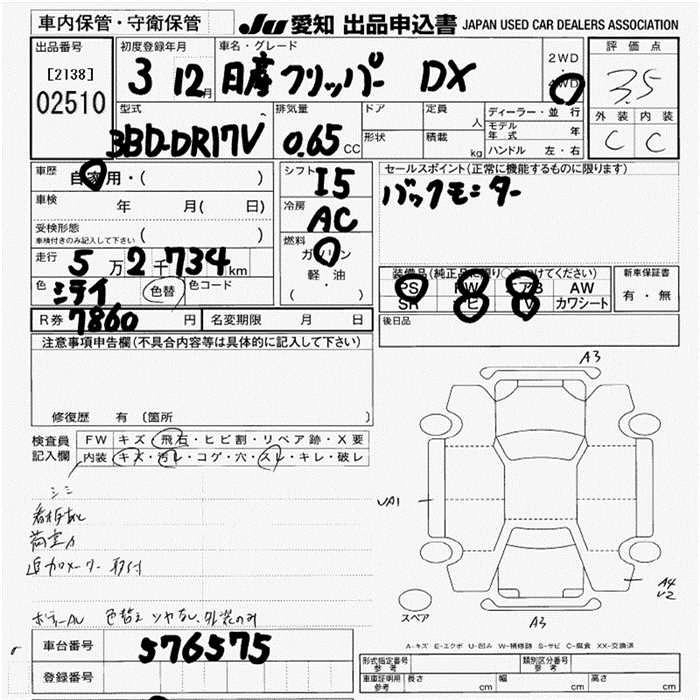 車内保管・守衛保管
JU 愛知 出品申込書 JAPAN USED CAR DEALERS ASSOCIATION
出品番号
[2138]
02510
初度登録年月
3 12月
車名・グレード
日産 クリッパー DX
2WD
・
4WD
評価点
3.5
外装 内装
C C
型式
3BD-DR17V
排気量
0.65 CC
ドア
形状
定員
人
積載
kg
ディーラー・並行
モデル年式 年
ハンドル 左・右
車歴
自家用・( )
車検
年 月( 日)
受検形態
車検付きのみ記入して下さい ( )
走行
5万2千734km
色
色替
色コード
R券 7860 円
名変期限 月 日
シフト
I5
冷房
AC
燃料
ガソリン
軽・油
( )
セールスポイント(正常に機能するものに限ります)
バックモニター
装備品(純正品に限り○をつけてください)
PS PW エアB AW
SR ナビ TV カワシート
新車保証書
有・無
後日品
注意事項申告欄(不具合内容等は具体的に記入して下さい)
修復歴 有 (箇所
検査員
記入欄
FW キズ・飛石・ヒビ割・リペア跡・X要
内装 キズ・汚レ・コゲ・穴・スレ・キレ・破レ
シミ
追加メーター 取付
ボデーAL 色替え ツヤなし 外装のみ
A3
UA1
A4
U2
A3
スペア
A-キズ E-エクボ U-凹み W-補修跡 S-サビ C-腐食 XX-交換済
車台番号
576575
登録番号
形式指定番号
参考
類別区分番号
参考
車庫証明用
参考
長さ cm
幅 cm
高さ cm